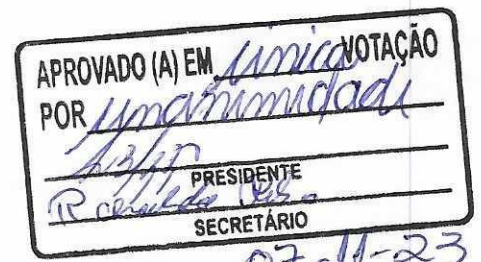 APROVADO (A) EM única VOTAÇÃO
POR unanimidade
PRESIDENTE
SECRETÁRIO
07-11-23